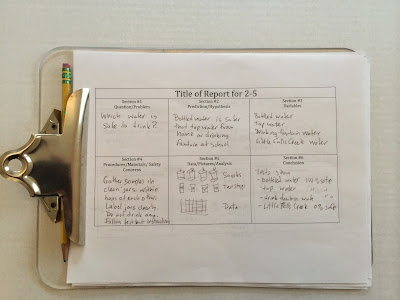 Title of Report for 2-5
Section #1
Question/Problem
Which water is
safe to drink?
Section #2
Prediction/Hypothesis
Bottled water is safer
that tap water from
home or drinking
fountain at school.
Section #3
Variables
Bottled water
Tap water
Drinking fountain water
Little Falls Creek water
Section #4
Procedures/Materials/ Safety
Concerns
Gather samples in
clean jars within
hours of each other.
Label jars clearly.
Do not drink any.
Follow test kit instructions
Section #5
Data/Pictures/Analysis
Samples
Test Strips
Data
Section #6
Conclusion
Tests show
- bottled water 100% safe
- tap water
- drink fountain water
- Little Falls Creek 0% safe